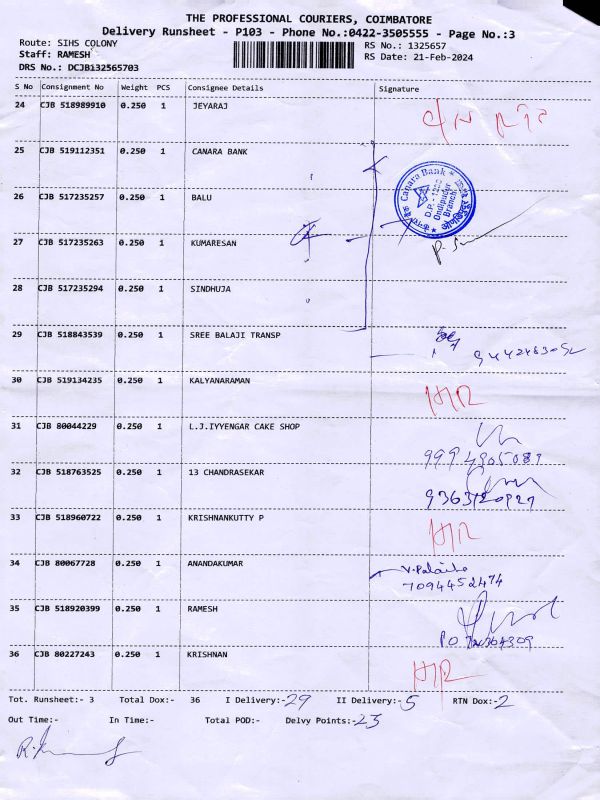 THE PROFESSIONAL COURIERS, COIMBATORE
Delivery Runsheet - P103 - Phone No.:0422-3505555 - Page No.:3
Route: SIHS COLONY RS No.: 1325657
Staff: RAMESH RS Date: 21-Feb-2024
DRS No.: DCJB132565703
S No Consignment No Weight PCS Consignee Details Signature
24 CJB 518989910 0.250 1 JEYARAJ
25 CJB 519112351 0.250 1 CANARA BANK
Canara Bank
Branch
26 CJB 517235257 0.250 1 BALU
27 CJB 517235263 0.250 1 KUMARESAN
28 CJB 517235294 0.250 1 SINDHUJA
29 CJB 518843539 0.250 1 SREE BALAJI TRANSP
30 CJB 519134235 0.250 1 KALYANARAMAN
31 CJB 80044229 0.250 1 L.J.IYYENGAR CAKE SHOP
32 CJB 518763525 0.250 1 13 CHANDRASEKAR
33 CJB 518960722 0.250 1 KRISHNANKUTTY P
34 CJB 80067728 0.250 1 ANANDAKUMAR
7094452474
35 CJB 518920399 0.250 1 RAMESH
36 CJB 80227243 0.250 1 KRISHNAN
Tot. Runsheet:- 3 Total Dox:- 36 I Delivery:-29 II Delivery:-5 RTN Dox:-2
Out Time:- In Time:- Total POD:- Delvy Points:-23